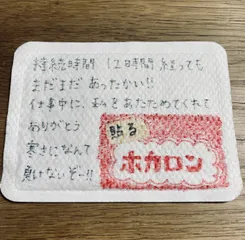 持続時間 12時間 経っても
まだまだ あったかい!!
仕事中に、私をあたためてくれて
ありがとう
寒さになんて
負けないぞー!!
貼る
ホカロン